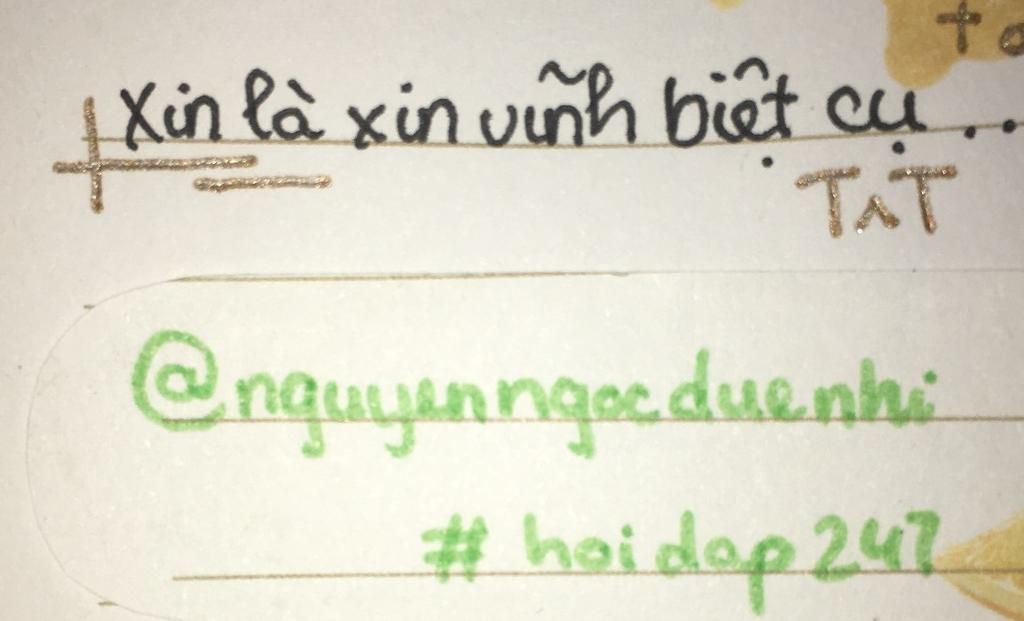 Xin là xin vĩnh biệt cụ...
TᴧT
@nguyenngocduenhi
#hoidap247